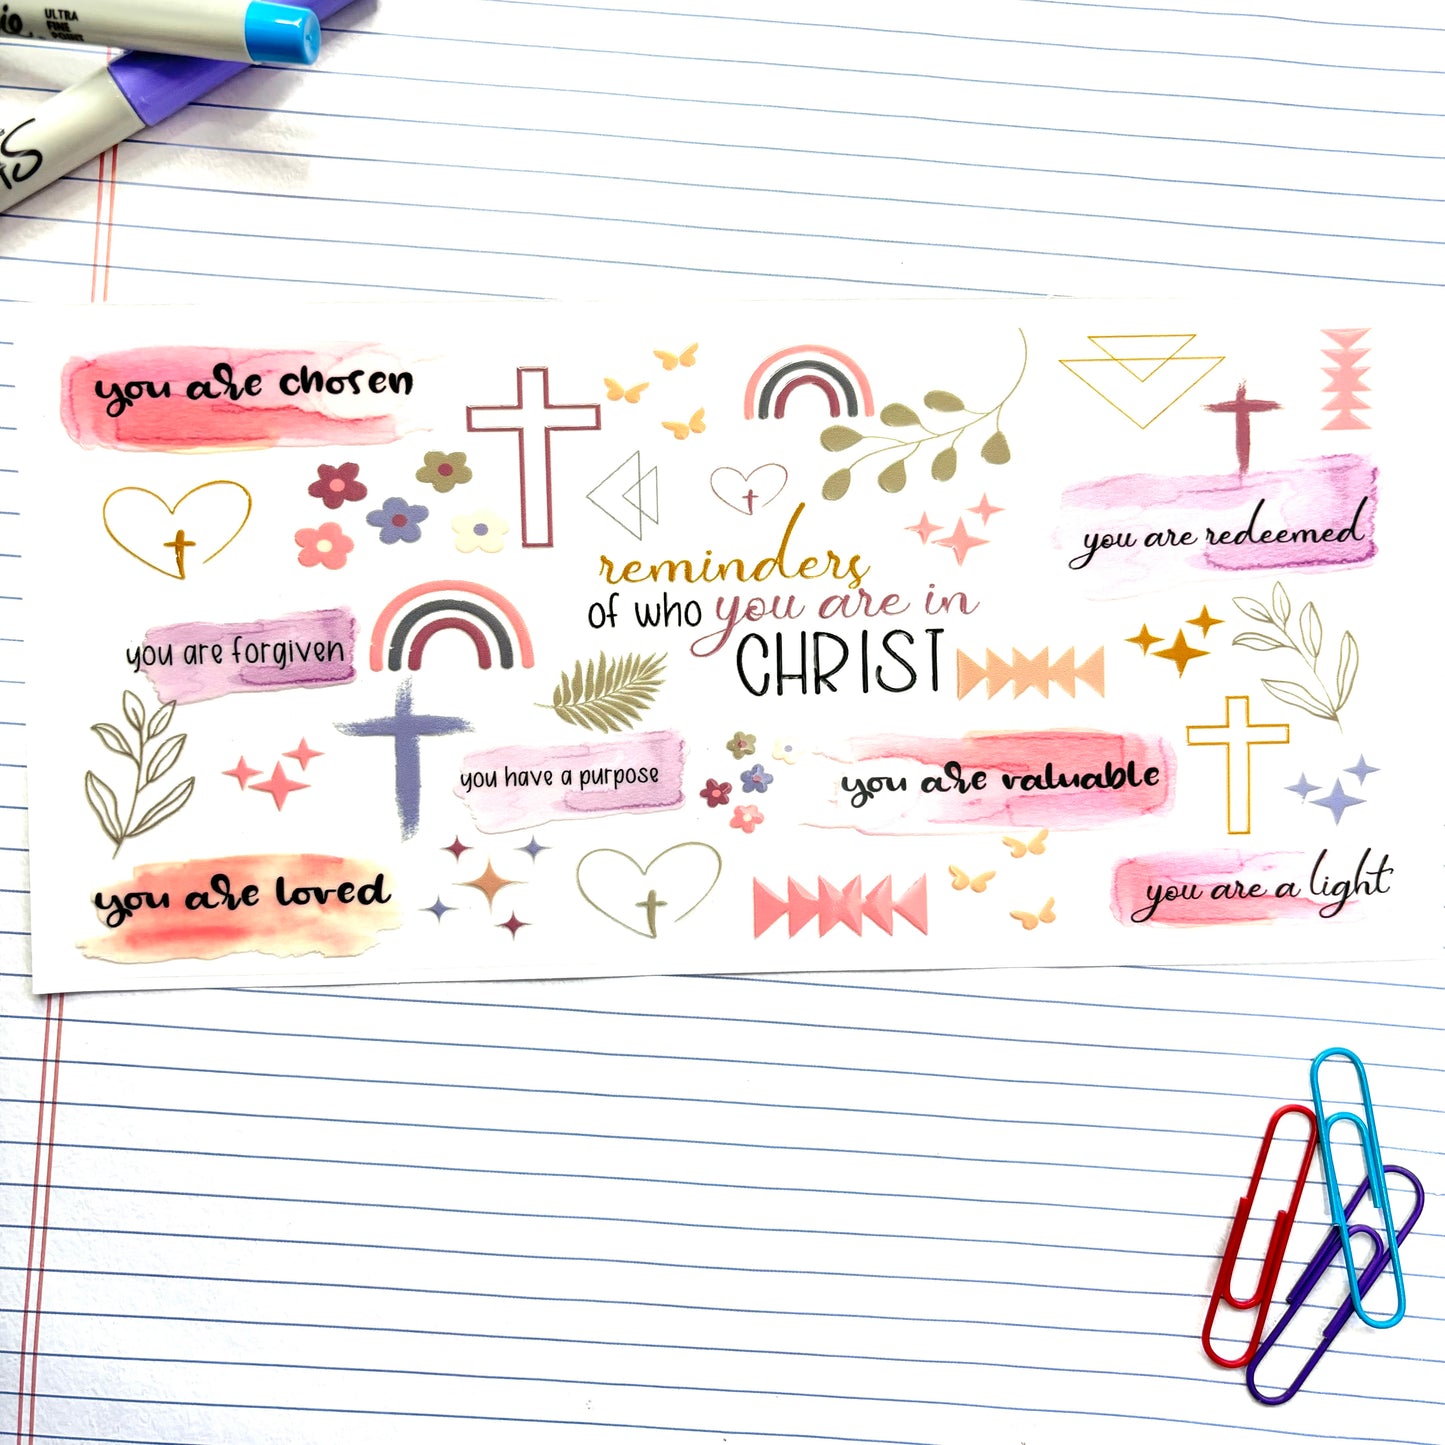 ULTRA
FINE
POINT
you are chosen
you are redeemed
reminders
of who you are in
CHRIST
you are forgiven
you have a purpose
you are valuable
you are loved
you are a light